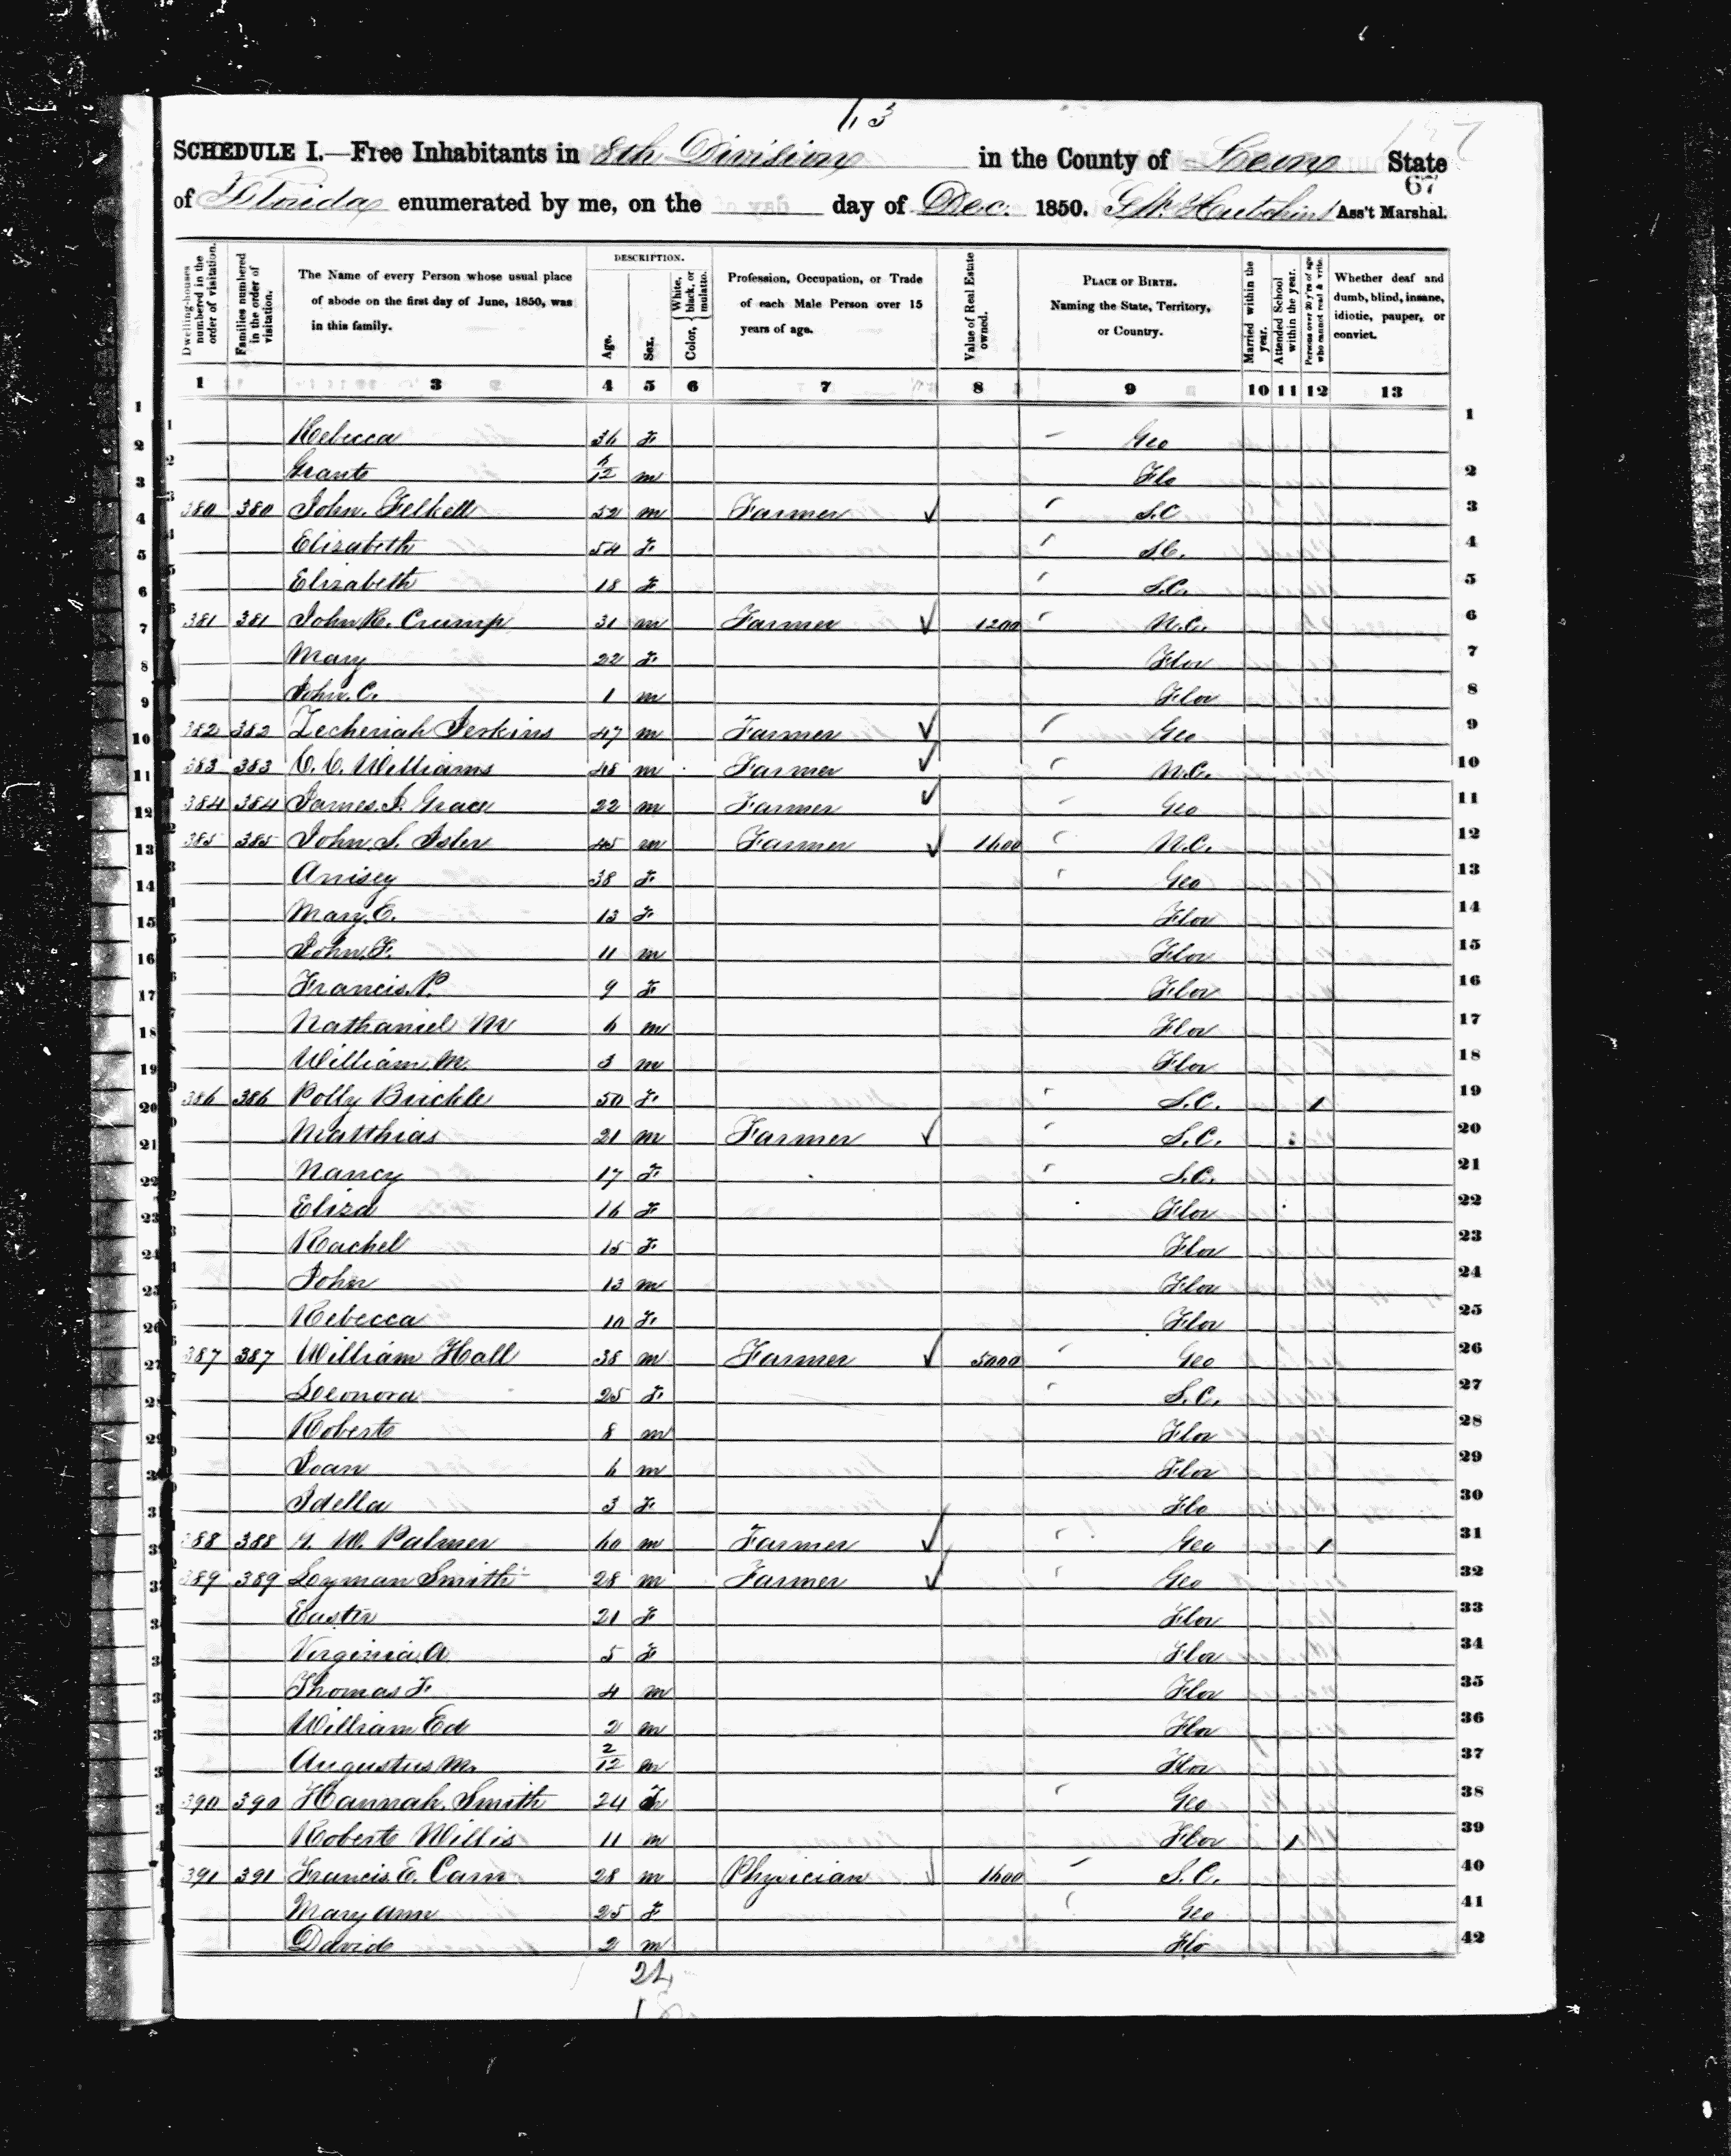 13
SCHEDULE I.—Free Inhabitants in 8th Division in the County of Leon State
67
of Florida enumerated by me, on the ___ day of Dec. 1850. G.W. Hutchins Ass't Marshal.
Dwelling-houses numbered in the order of visitation.
Families numbered in the order of visitation.
The Name of every Person whose usual place of abode on the first day of June, 1850, was in this family.
DESCRIPTION.
Age.
Sex.
Color, { White, black, or mulatto.
Profession, Occupation, or Trade of each Male Person over 15 years of age.
Value of Real Estate owned.
PLACE OF BIRTH. Naming the State, Territory, or Country.
Married within the year.
Attended School within the year.
Persons over 20 y'rs of age who cannot read & write.
Whether deaf and dumb, blind, insane, idiotic, pauper, or convict.
1 3 4 5 6 7 8 9 10 11 12 13
1 Rebecca 36 F Geo 1
2 Grant 6/12 m Flo 2
3 380 380 John Felkell 52 m Farmer S.C 3
4 Elizabeth 54 F S.C. 4
5 Elizabeth 18 F S.C. 5
6 381 381 John R. Crump 31 m Farmer 1200 N.C. 6
7 Mary 22 F Flor 7
8 John C. 1 m Flor 8
9 382 382 Zecheriah Jerkins 47 m Farmer Geo 9
10 383 383 C. C. Williams 48 m Farmer N.C. 10
11 384 384 James J. Grace 22 m Farmer Geo 11
12 385 385 John S. Isler 45 m Farmer 1600 N.C. 12
13 Anisey 38 F Geo 13
14 Mary E. 13 F Flor 14
15 John F. 11 m Flor 15
16 Francis P. 9 F Flor 16
17 Nathaniel M 6 m Flor 17
18 William M. 3 m Flor 18
19 386 386 Polly Brickle 50 F S.C. 1 19
20 Matthias 21 m Farmer S.C. 20
21 Nancy 17 F S.C. 21
22 Eliza 16 F Flor 22
23 Rachel 15 F Flor 23
24 John 13 m Flor 24
25 Rebecca 10 F Flor 25
26 387 387 William Hall 38 m Farmer 5000 Geo 26
27 Leonora 25 F S.C. 27
28 Robert 8 m Flor 28
29 Joan 6 m Flor 29
30 Idella 3 F Flo 30
31 388 388 W. Palmer 60 m Farmer Geo 1 31
32 389 389 Loyman Smith 28 m Farmer Geo 32
33 Easter 21 F Flor 33
34 Virginia A 5 F Flor 34
35 Thomas F. 4 m Flor 35
36 William Ed 2 m Flor 36
37 Augustus M. 2/12 m Flor 37
38 390 390 Hannah Smith 24 F Geo 38
39 Robert Willis 11 m Flor 1 39
40 391 391 Francis E. Carn 28 m Physician 1600 S.C. 40
41 Mary Ann 25 F Geo 41
42 David 2 m Flo 42
24